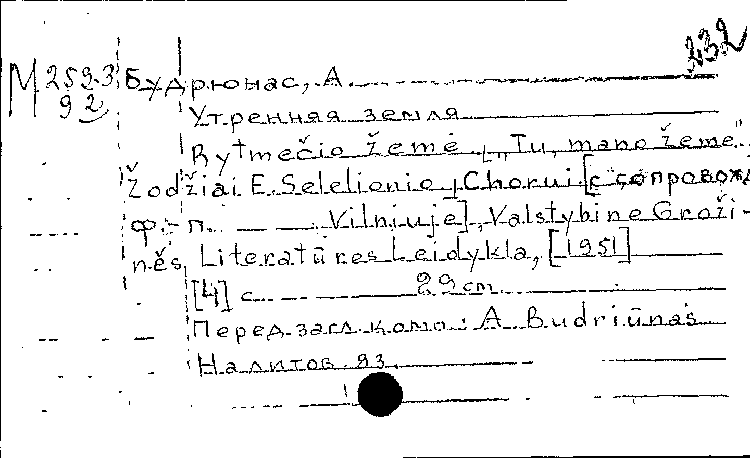 232
М 259.3 Будрюнас, А.
92
Утренняя земля
Rytmečio žemė, [„Tu, mano žeme".
Žodžiai E. Selelionio, Chorui [с сопровожд
ф.-п. Vilniuje], Valstybine Groži-
nės Literatūres Leidykla, [1951]
[4] с. 29 cm
Перед загл. комп: A. Budriūnas
На литов. яз.